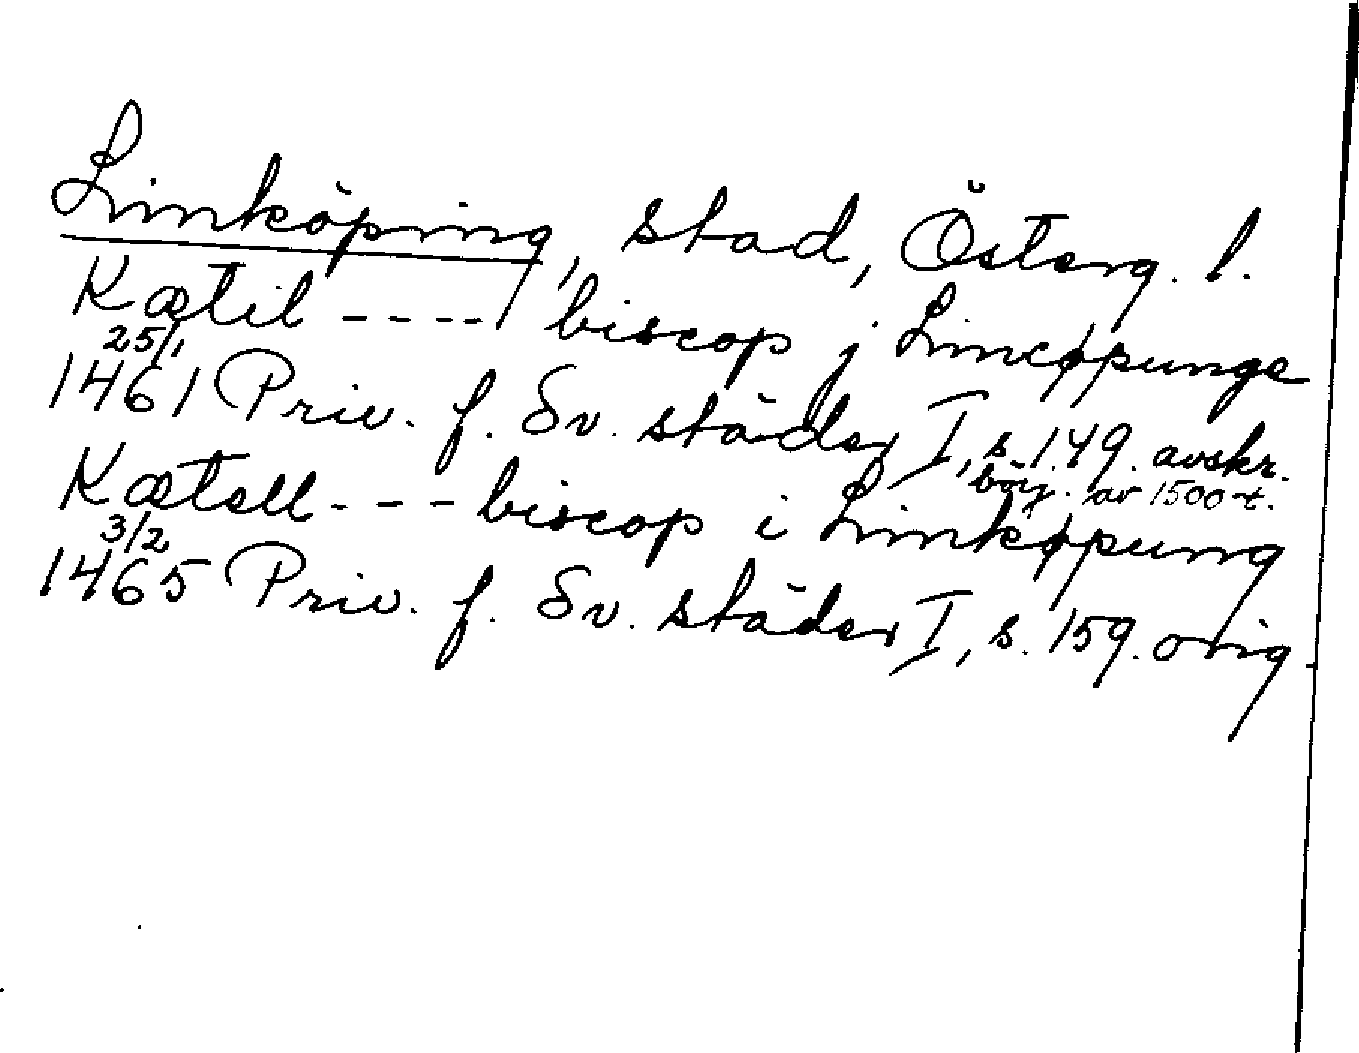 Linköping, stad, Österg. l.
Kætil ---- biscop j Lincøpunge
25/1
1461 Priv. f. Sv. städer I, s. 149. avskr.
börj. av 1500-t.
Kætell --- biscop i Linkøpung
3/2
1465 Priv. f. Sv. städer I, s. 159. orig.